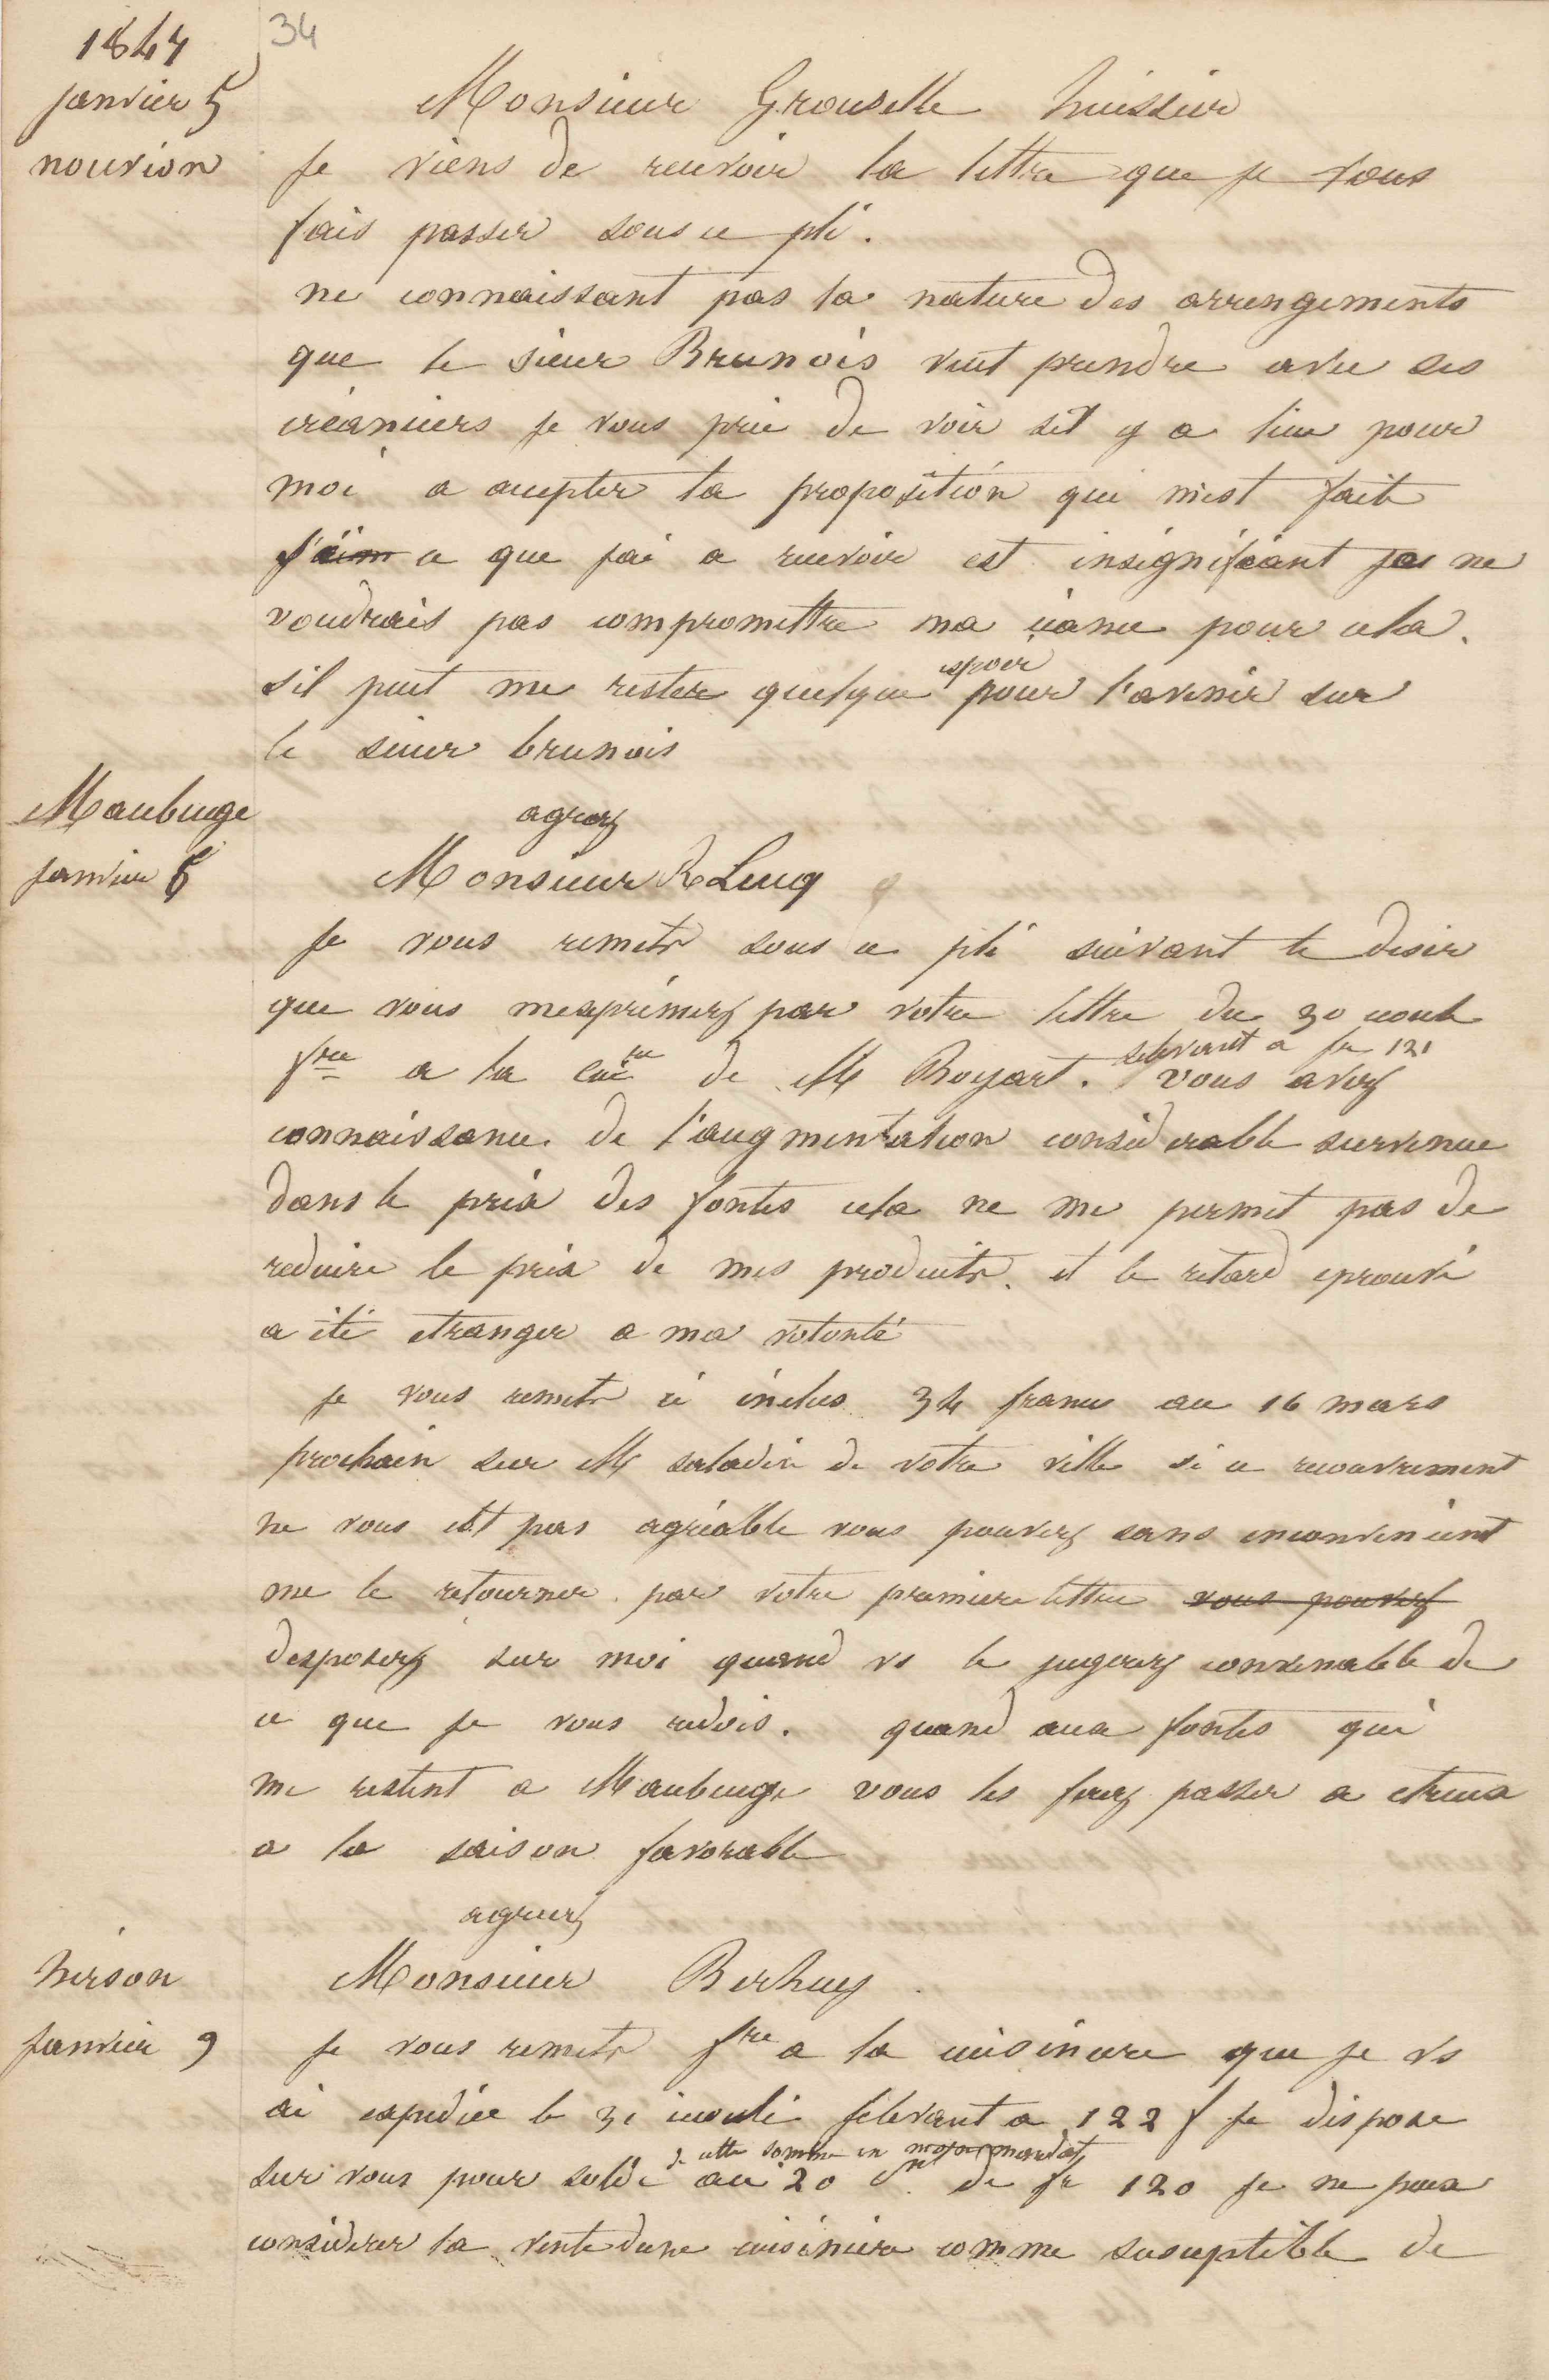 34
1847
janvier 5
nouvion
Monsieur Grouselle huissier
Je viens de recevoir la lettre que je vous
fais passer sous ce pli.
ne connaissant pas la nature des arrengements
que le sieur Brunois veut prendre avec ses
créanciers je vous prie de voir sil y a lieu pour
moi a accepter la proposition qui m'est faite
ce que jai a recevoir est insignifiant je ne
voudrais pas compromettre ma cance pour cela.
s'il peut me rester quelque espoir pour l'avenir sur
le sieur brunois
agreez
Maubeuge
janvier 5
Monsieur R Lucq
Je vous remets sous ce pli suivant le desir
que vous mexprimez par votre lettre du 30 ecoulé
fre a la cuire de M Boyart. selevant a fr 121 vous avez
connaissance de l'augmentation considerable survenue
dans le prix des fontes cela ne me permet pas de
reduire le prix de mes produits. et le retard eprouvé
a été etranger a ma volonté
je vous remets ci inclus 34 francs au 16 mars
prochain sur M saladin de votre ville si ce recouvrement
ne vous est pas agréable vous pouvez sans inconvenient
me le retourner par votre premiere lettre vous pouvez
desposerz sur moi quand vs le jugerez convenable de
ce que je vous redois. quand aux fontes qui
me restent a Maubeuge vous les ferez passer a etreux
a la saison favorable
agreez
hirson
Janvier 9
Monsieur Berhuy
Je vous remets fre a la cuisiniere que je vs
ai expediée le 31 ecoulé s'elevant a 122 f je dispose
sur vous pour solde de cette somme en mandat au 20 ct de fr 120 je ne peux
considerer la vente dune cuisiniere comme suseptible de